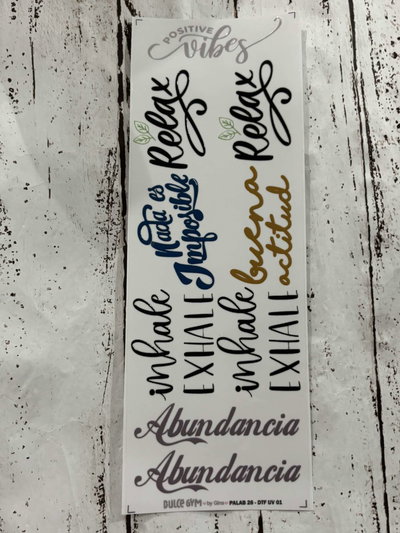 POSITIVE
vibes
Relax
Relax
Nada es
Imposible
buena
actitud
inhale
EXHALE
inhale
EXHALE
Abundancia
Abundancia
DULCE GYM by Gina PALAB 26 - DTF UV 01